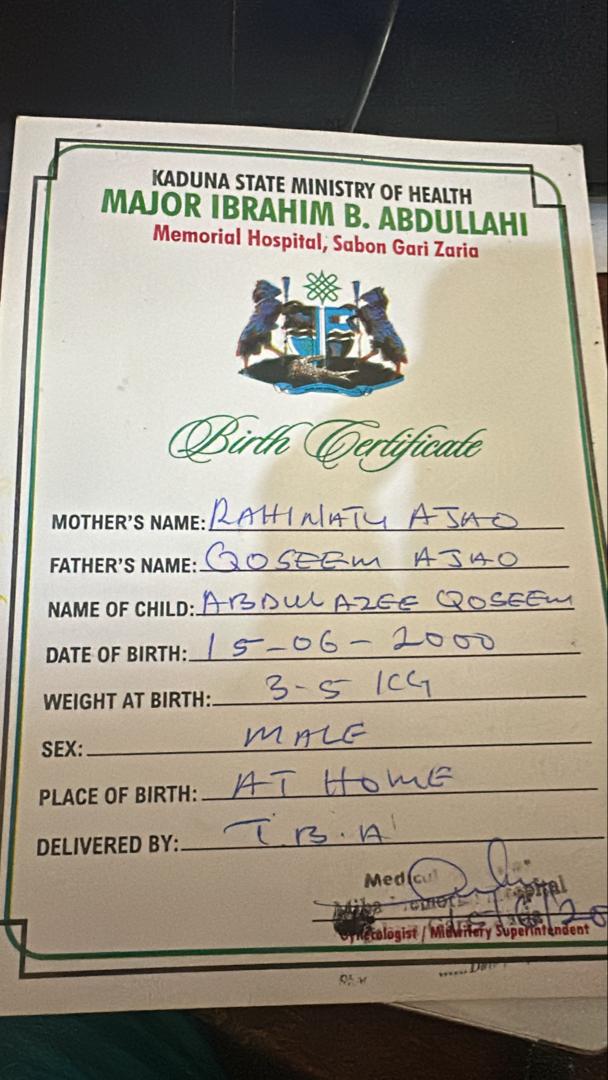 KADUNA STATE MINISTRY OF HEALTH
MAJOR IBRAHIM B. ABDULLAHI
Memorial Hospital, Sabon Gari Zaria
Birth Certificate
MOTHER'S NAME: RAHINATU AJAO
FATHER'S NAME: QOSEEM AJAO
NAME OF CHILD: ABDUL AZEE QOSEEM
DATE OF BIRTH: 15-06-2000
WEIGHT AT BIRTH: 3-5 KG
SEX: MALE
PLACE OF BIRTH: AT HOME
DELIVERED BY: T.B.A
Medical
Gynecologist / Midwifery Superintendent